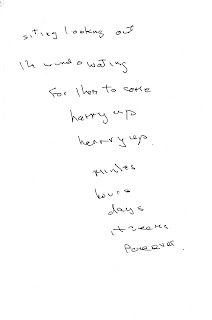 siting looking out
the window wating
for them to come
harry up
hearry up.
minles
hours
days
it seems
forever.